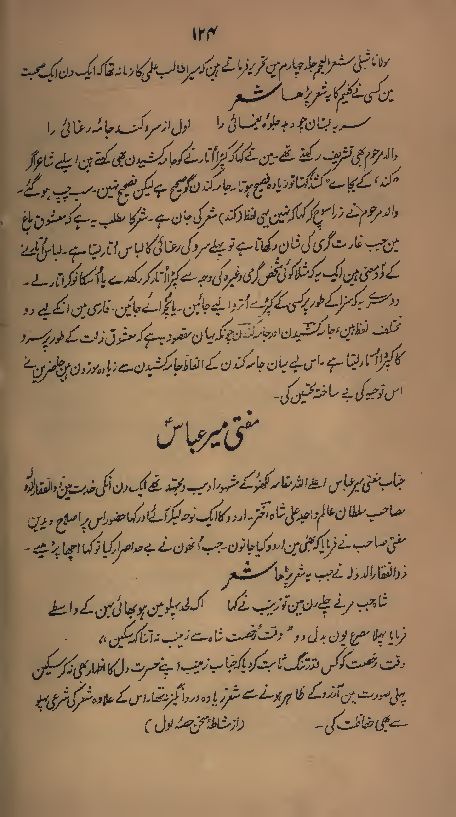 ۱۲۴
مولانا شبلی شعر العجم جلد چہارم مین تحریر فرماتے ہین کہ میرا طالب علمی کا زمانہ تھا کہ ایک دن ایک صحبت
مین کسی نے کلیم کا یہ شعر پڑھا شعر
بستان جو جلوہ یغمائی را اول از سرو کند جامہ رعنائی را
والد مرحوم بھی تشریف رکھتے تھے۔ مین نے کہا کہ کپڑا اُتارنے کو جامہ کشیدن بھی کہتے ہین اسلیے شاعر اگر
"کند" کے بجاے "کشد" کہتا تو زیادہ فصیح ہوتا۔ جامہ کندن گو صحیح ہے لیکن فصیح نہین۔ سب چپ ہو گئے۔
والد مرحوم نے ذرا سوچ کر کہا کہ نہین یہی لفظ (کند) شعر کی جان ہے۔ شعر کا مطلب یہ ہے کہ معشوق باغ
مین جب غارت گری کی شان دکھاتا ہے تو پہلے سرو کی رعنائی کا لباس اُتار لیتا ہے۔ لباس اُتارنے
کے دو معنی ہین ایک یہ کہ مثلاً کوئی شخص گرمی وغیرہ کی وجہ سے کپڑا اُتار کر رکھدے یا اُسکا نوکر اُتار لے۔
دوسرے یہ کہ سزا کے طور پر کسی کے کپڑے اُتروا لیے جائین۔ یا نچوائے جائین۔ فارسی مین انکے لیے دو
مختلف لفظ ہین، جامہ کشیدن اور جامہ کندن چونکہ یہان مقصود یہ ہے کہ معشوق ذلت کے طور پر سرو
کا کپڑا اُتار لیتا ہے۔ اس لیے یہان جامہ کندن کے الفاظ جامہ کشیدن سے زیادہ موزون ہین حاضرین نے
اس توجیہ کی بے ساختہ تحسین کی۔
مفتی میر عباس
جناب مفتی میر عباس اعلے اللہ مقامہ لکھنؤ کے مشہور ادیب و مجتہد تھے ایک دن انکی خدمت مین ذوالفقار الدولہ
مصاحب سلطان عالم واجد علی شاہ اختر۔ اردو کا ایک نوحہ لیکر آئے اور کہا حضور اس پر اصلاح دیدین
مفتی صاحب نے فرمایا کہ بھئی مین اردو کیا جانون۔ جب اُنھون نے بے حد اصرار کیا تو کہا اچھا پڑھیے۔
ذوالفقار الدولہ نے جب یہ شعر پڑھا شعر
شاہ جب مرنے چلے رن مین تو زینب نے کہا پہلو مین ہو بھائی بہن کے واسطے
فرمایا پہلا مصرع یون بدل دو "وقت رخصت شاہ سے زینب نہ اتنا کہ سکین"
وقت رخصت کو کس قدر تنگ ثابت کر دیا کہ جناب زینب اپنے حسرت دل کا اظہار بھی نہ کر سکین
پہلی صورت مین آرزو کے ظاہر ہونے سے شعر زیادہ درد انگیز نہ تھا۔ اس کے علاوہ شعر کی شرعی پہلو
سے بھی حفاظت کی۔ (از مشاطۂ سخن حصہ اول)